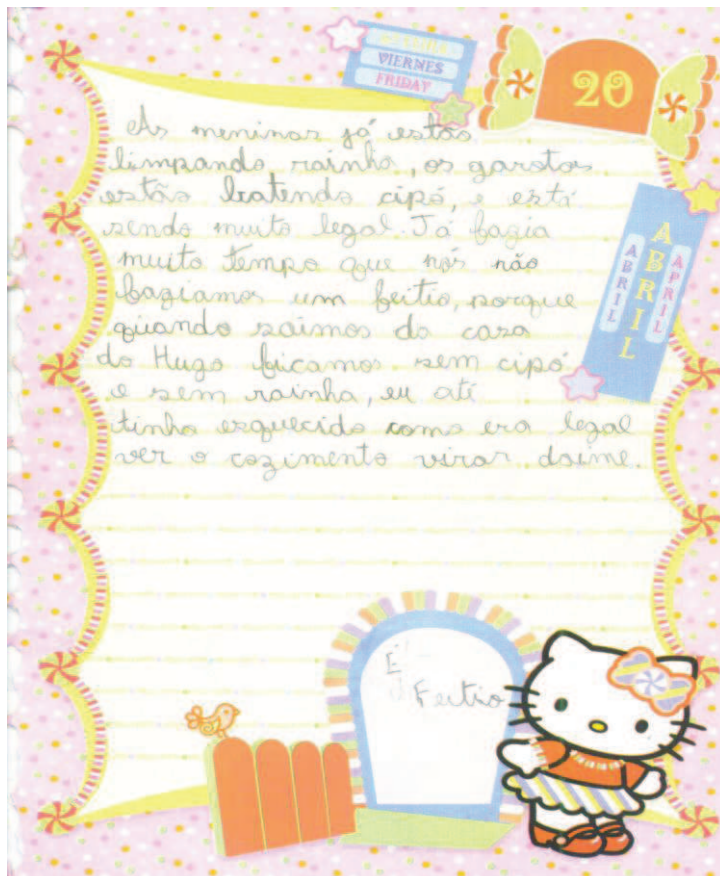 VIERNES
FRIDAY
20
ABRIL
ABRIL
APRIL
As meninas já estão
limpando rainha, os garotos
estão batendo cipó, e está
sendo muito legal. Já fazia
muito tempo que nós não
faziamos um feitio, porque
quando saimos da casa
do Hugo ficamos sem cipó
e sem rainha, eu até
tinha esquecido como era legal
ver o cozimento virar daime.
É
Feitio